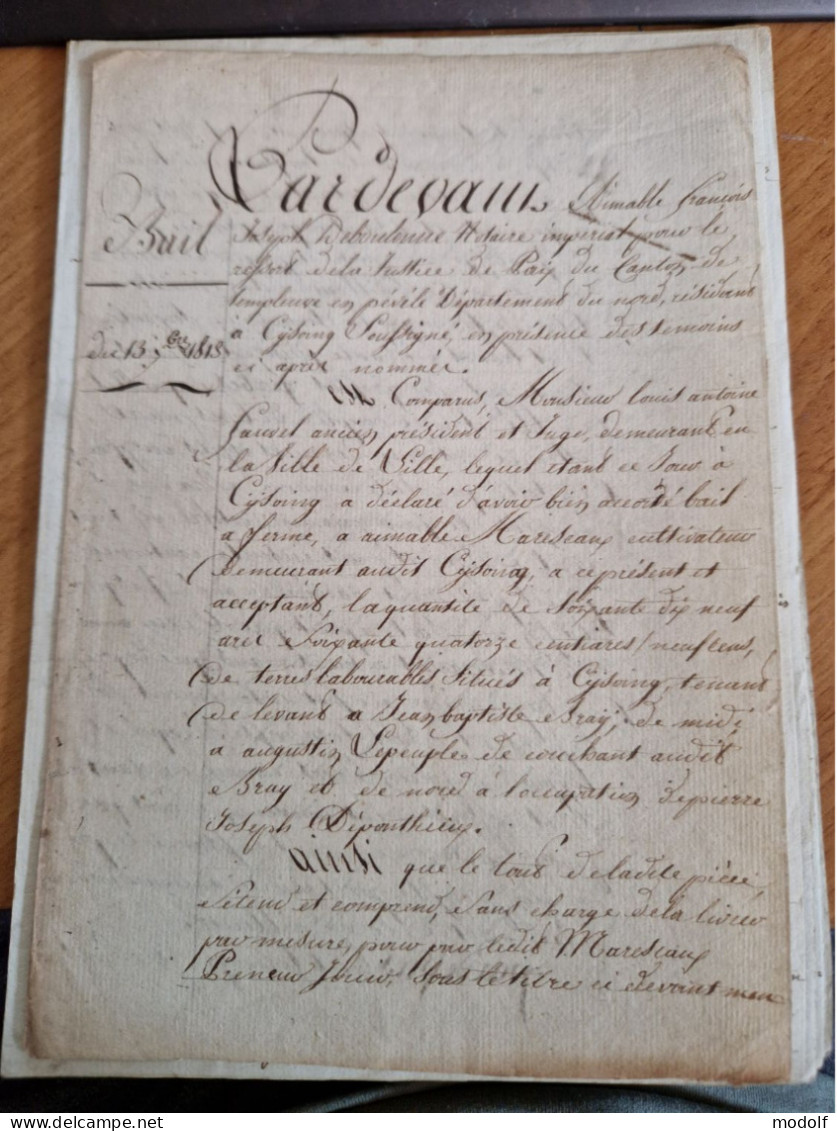 Pardevant Aimable françois
Bail
Joseph notaire imperial pour le
resort de la Justice de Paix du Canton de
templeuve en pévèle Département du nord, résidant
du 13 1813
à Cysoing Soussigné, en présence des temoins
ci après nommés.
Est Comparus, Monsieur louis antoine
ancien président et Juge, demeurant en
la Ville de Lille, lequel etant ce Jour à
Cysoing a déclaré d'avoir bien accordé bail
a ferme, a aimable Mareseaux cultivateur
demeurant audit Cysoing, a ce présent et
acceptant, la quantité de soixante dix neuf
ares soixante quatorze centiares / neuf cens,
de terres labourables situés à Cysoing, tenant
de levant a Jean baptiste Bray, de midi
à augustin Lepeuple de couchant audit
Bray et de nord à l'occupation de pierre
Joseph Déponthieux.
ainsi que le tout de ladite pièce
s'étend et comprend, sans charge de la livrer
par mesure, pour par ledit Mareseaux
Preneur Jouir, sous le titre ci devant men
modolf